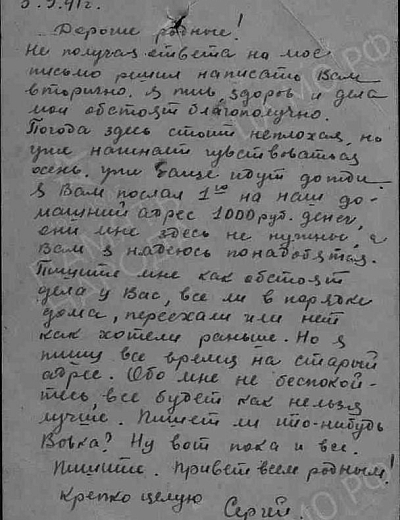 5.9.41 г.
Дорогие родные!
Не получая ответа на мое
письмо решил написать Вам
вторично. Я жив, здоров и дела
мои обстоят благополучно.
Погода здесь стоит неплохая, но
уже начинает чувствоваться
осень. Уже чаще идут дожди.
Я Вам послал 1го на наш до-
машний адрес 1000 руб. денег,
они мне здесь не нужны, а
Вам я надеюсь понадобятся.
Пишите мне как обстоят
дела у Вас, все ли в порядке
дома, переехали или нет
как хотели раньше. Но я
пишу все время на старый
адрес. Обо мне не беспокой-
тесь все будет как нельзя
лучше. Пишет ли что-нибудь
Вовка? Ну вот пока и все.
Пишите. Привет всем родным!
Крепко целую
Сергей.